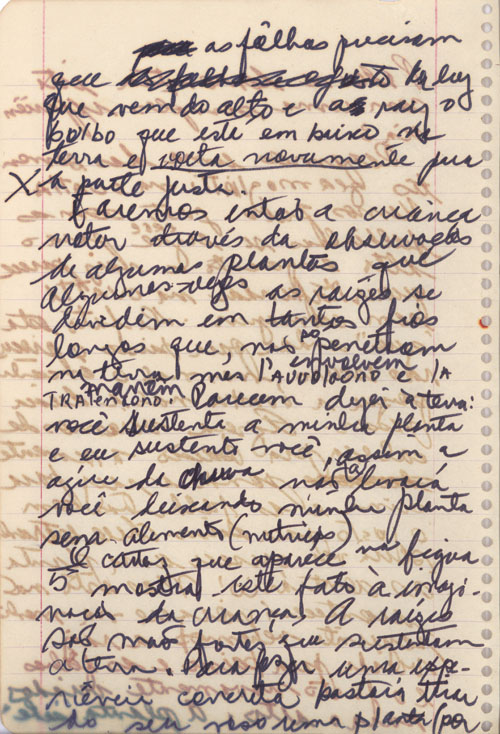 as fôlhas precisam
que da luz
que vem do alto e as raiz o
bolbo que este em baixo na
terra e volta novamente pra
X a parte justa.
Faremos entaõ a criança
notar através da observaçaõ
de algumas plantas que
algumas-vezes as raízes se
dividem em tantos fios
longos que, nas penetram
na terra mas l'AVVOLGONO envolvem e LA
TRATTENGONO. Parecem dizer à terra:
você sustenta a minha planta
e eu sustento você, assim a
agúa da chuva naõ ta levará
você deixando minha planta
sena alimento (nutriçaõ)
O cartaz que aparece na figua
5 mostra este fato à imagi-
naçaõ da criança. A raízes
saõ maõ fortes que sustentam
a terra. Para fazer uma expe-
riência concreta bastaria tirar
do seu vaso uma planta (por